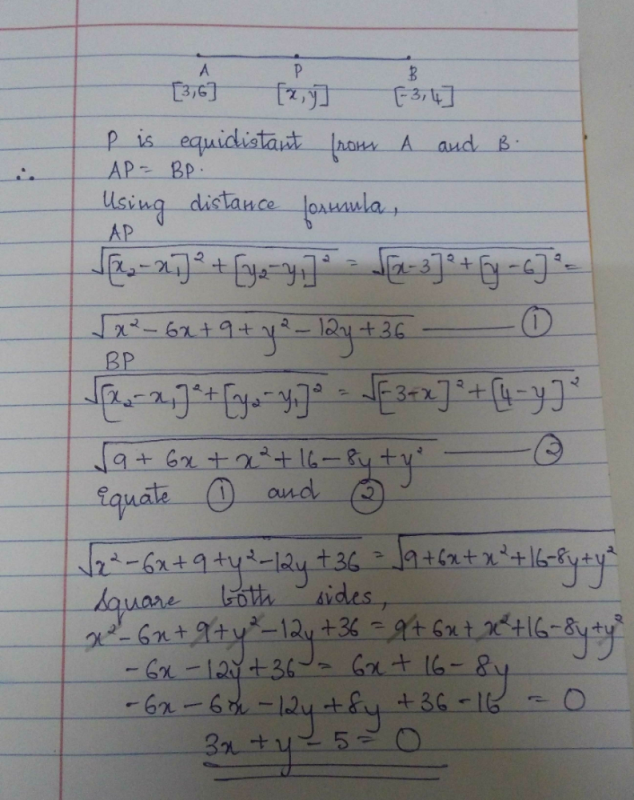 A P B
[3,6] [x,y] [-3,4]
P is equidistant from A and B.
∴ AP = BP.
Using distance formula,
AP
√[x₂-x₁]²+[y₂-y₁]² = √[x-3]²+[y-6]² =
√x²-6x+9+y²-12y+36 —— ①
BP
√[x₂-x₁]²+[y₂-y₁]² = √[-3-x]²+[4-y]²
√9+6x+x²+16-8y+y² —— ②
Equate ① and ②
√x²-6x+9+y²-12y+36 = √9+6x+x²+16-8y+y²
Square both sides,
x²-6x+9+y²-12y+36 = 9+6x+x²+16-8y+y²
-6x-12y+36 = 6x+16-8y
-6x-6x-12y+8y+36-16 = 0
3x+y-5=0